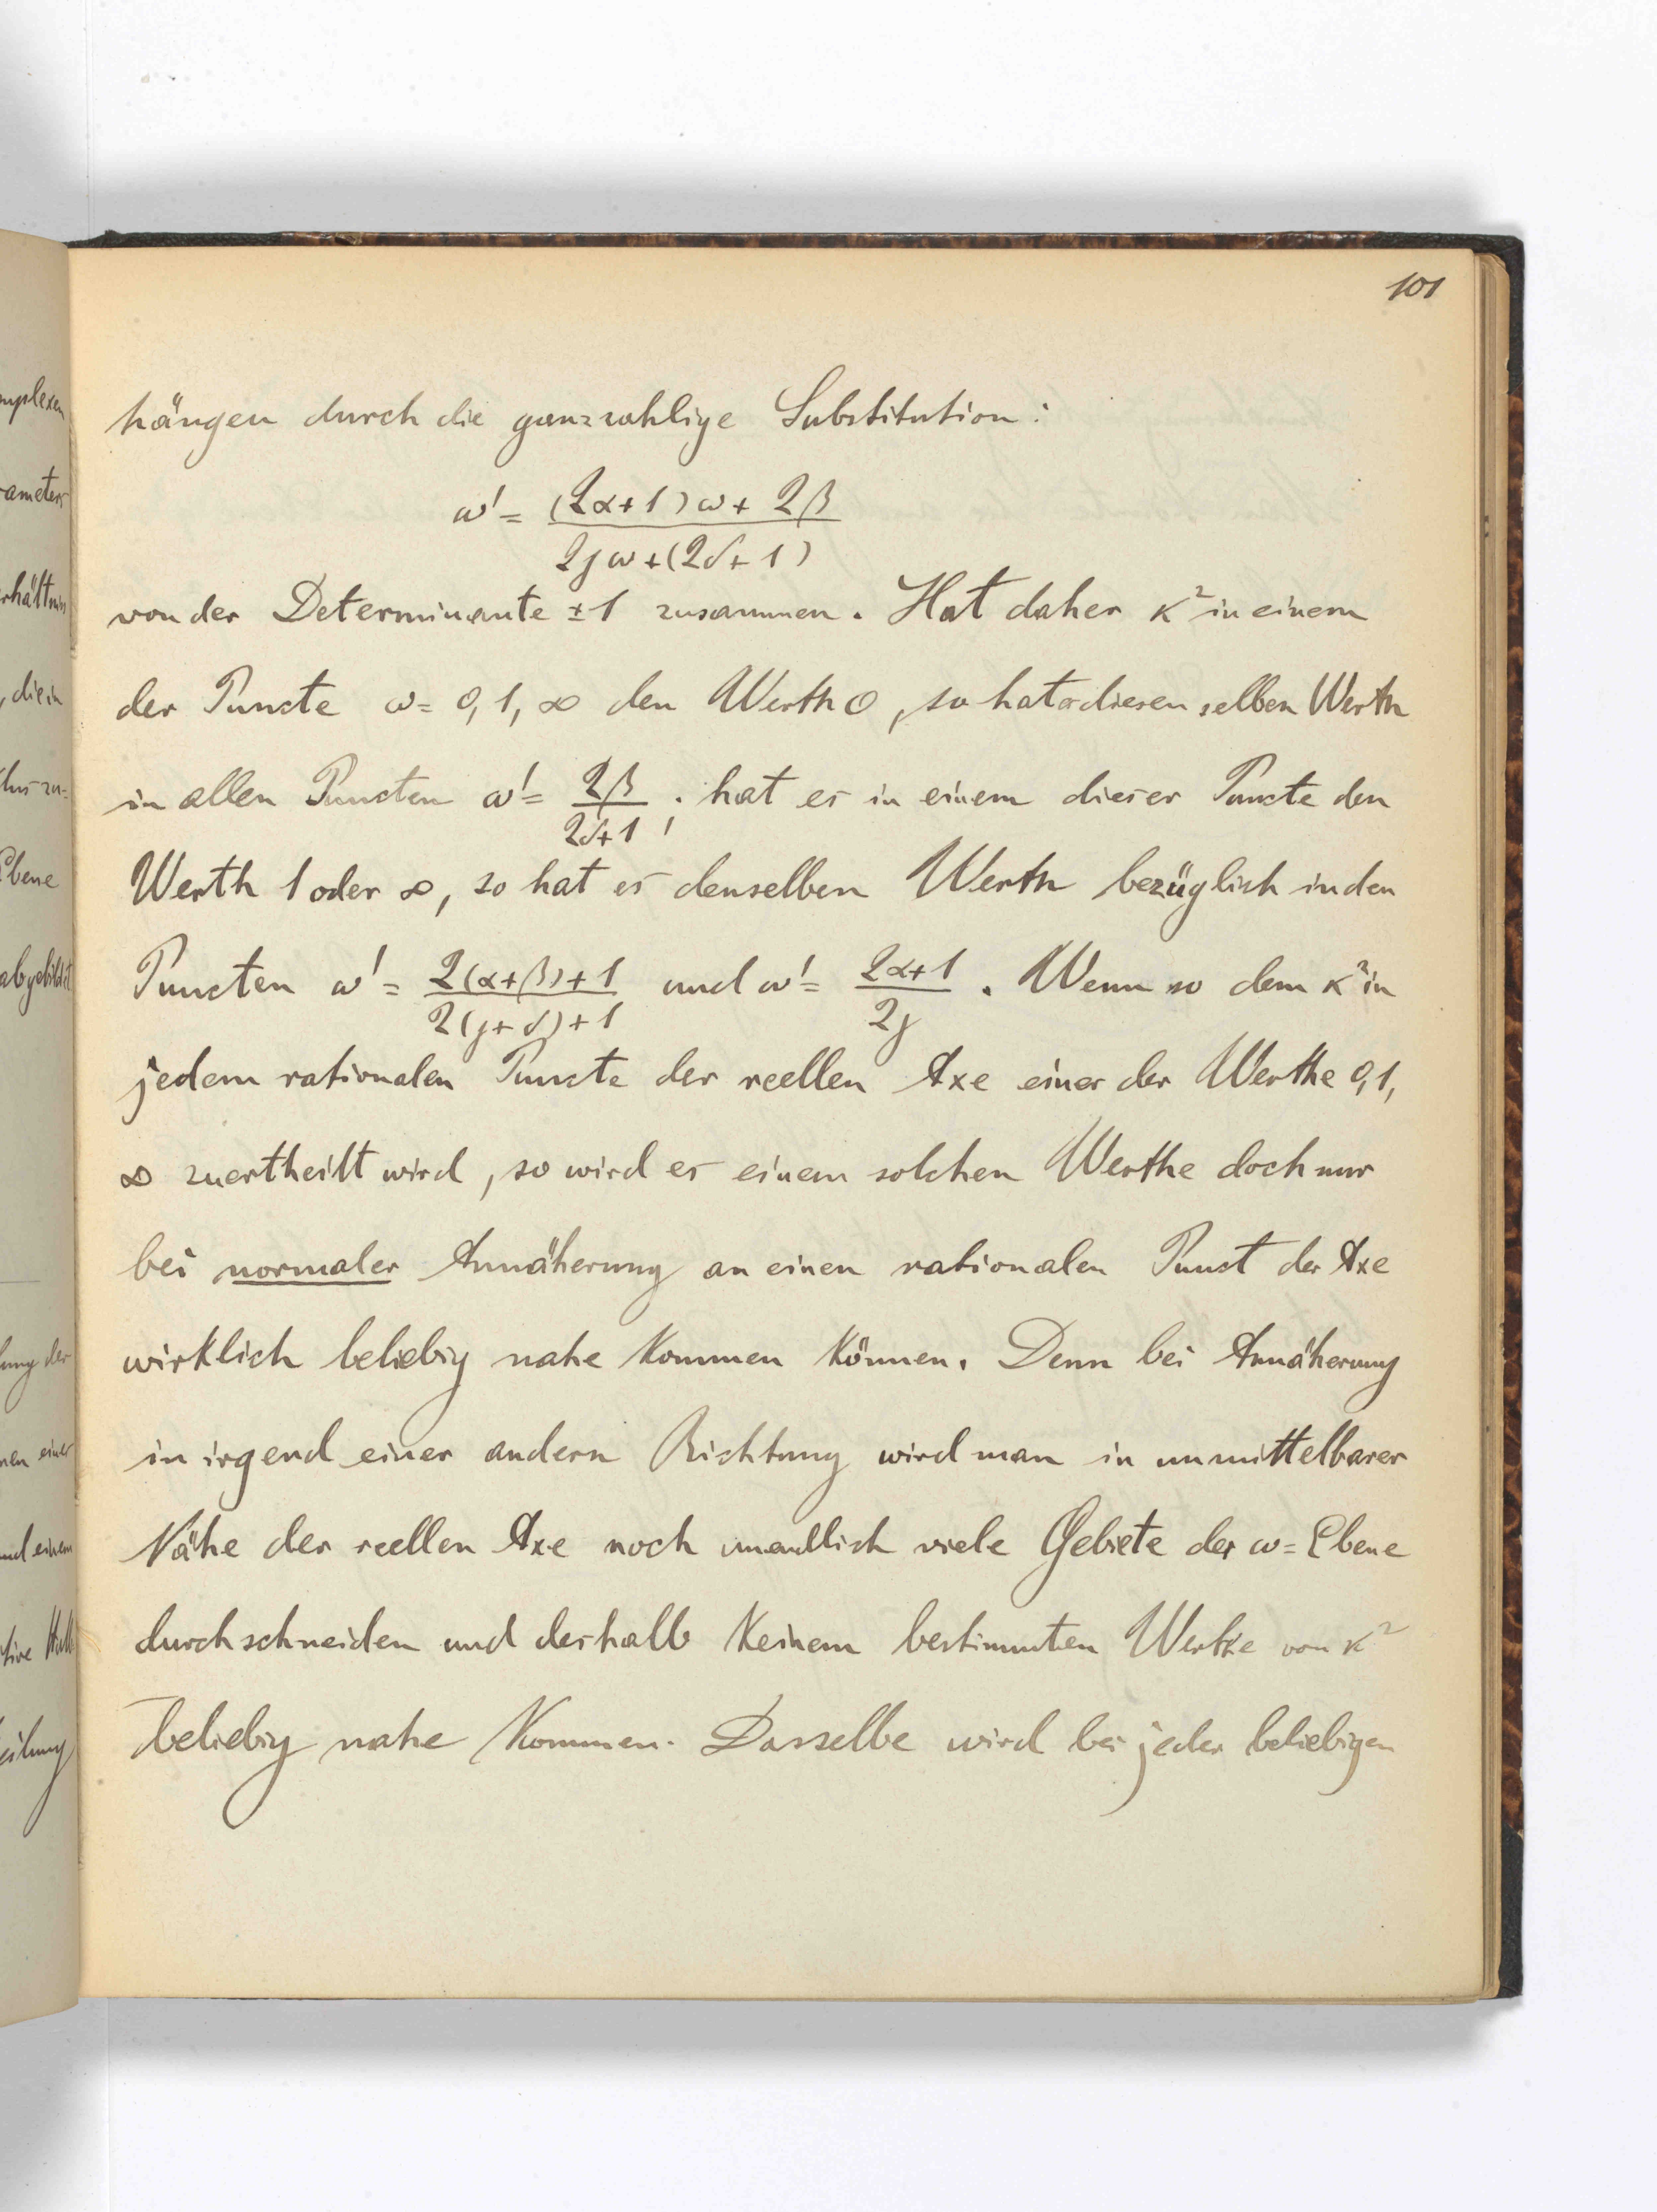 101
hängen durch die ganzzahlige Substitution:
ω' = ((2α+1)ω + 2β) / (2γω + (2δ+1))
von der Determinante ±1 zusammen. Hat daher κ² in einem
der Puncte ω = 0, 1, ∞ den Werth 0, so hat es diesenselben Werth
in allen Puncten ω' = 2β / (2δ+1); hat es in einem dieser Puncte den
Werth 1 oder ∞, so hat es denselben Werth bezüglich in den
Puncten ω' = (2(α+β)+1) / (2(γ+δ)+1) und ω' = (2α+1) / 2γ. Wenn so dem κ² in
jedem rationalen Puncte der reellen Axe einer der Werthe 0, 1,
∞ zuertheilt wird, so wird es einem solchen Werthe doch nur
bei normaler Annäherung an einen rationalen Punct der Axe
wirklich beliebig nahe kommen können. Denn bei Annäherung
in irgend einer andern Richtung wird man in unmittelbarer
Nähe der reellen Axe noch unendlich viele Gebiete der ω=Ebene
durchschneiden und deshalb keinem bestimmten Werthe von κ²
beliebig nahe kommen. Dasselbe wird bei jeder beliebigen